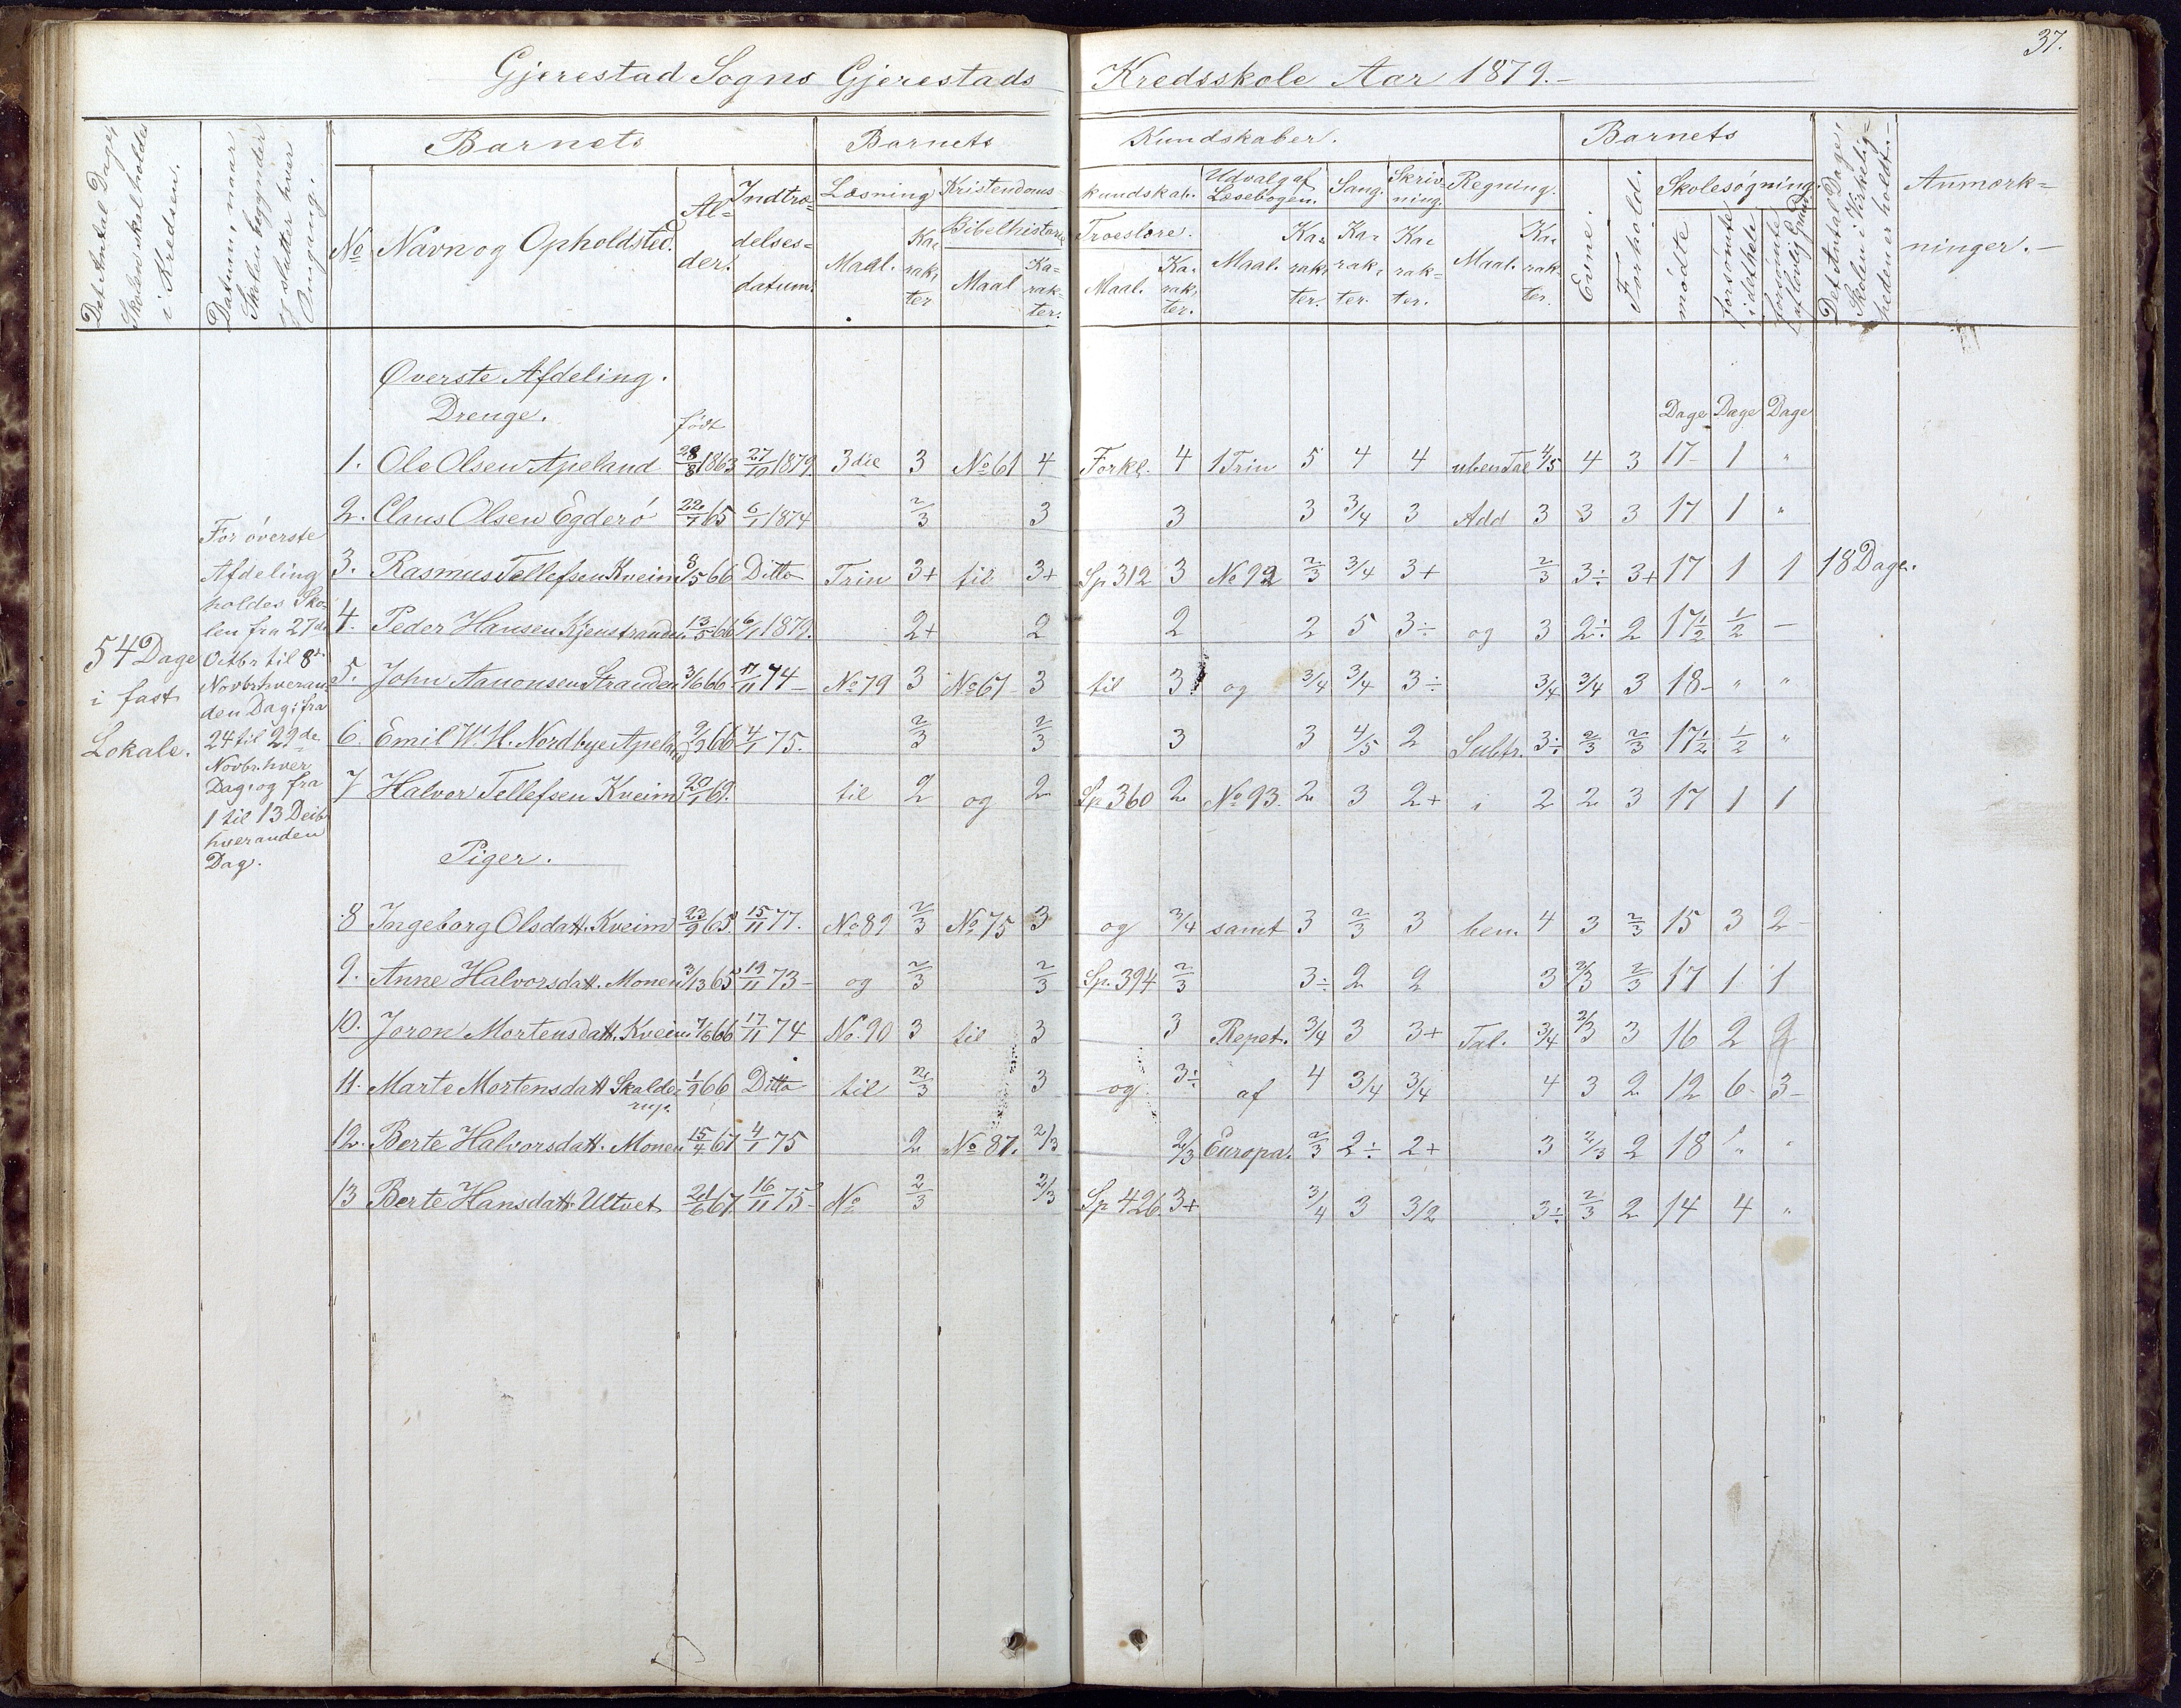 37.
Gjerestad Sogns Gjerestads Kredsskole Aar 1879.-
Det Antal Dage, Skolen skal holdes i Kredsen.
Datum, naar Skolen begynder og slutter hver Omgang.
Barnets
Barnets Kundskaber.
Barnets
Det Antal Dage, Skolen i Virkelig=heden er holdt.-
Anmærk=ninger.-
No Navn og Opholdsted. Al=der. Indtræ=delses=datum.
Læsning Kristendoms kundskab. Udvalg af Læsebogen. Sang. Skriv=ning. Regning. Evne. Forhold. Skolesøgning.
Bibelhistorie Troeslære.
Maal. Ka=rak=ter Maal Ka=rak=ter. Maal. Ka=rak=ter. Maal. Ka=rak=ter. Ka=rak=ter. Ka=rak=ter. Maal. Ka=rak=ter. mødte forsømte idethele forsømte af lovlig Grund
Øverste Afdeling.
Drenge.
født Dage Dage Dage
54 Dage
i fast
Lokale.
For øverste
Afdeling
holdes Sko=
len fra 27de
Octbr til 8de
Novbr hveran=
den Dag; fra
24 til 29de
Novbr. hver
Dag, og fra
1 til 13 Decbr
hveranden
Dag.
1. Ole Olsen Apeland 28/8 1863 27/10 1879. 3die 3 No 61 4 Forkl. 4 1 Trin 5 4 4 uben Tal 4/5 4 3 17 1 "
2. Claus Olsen Egderø 22/7 65 6/1 1874 2/3 3 3 3 3/4 3 Add 3 3 3 17 1 "
3. Rasmus Tellefsen Kveim 8/5 66 Ditto Trin 3+ til 3+ Sp 312 3 No 92 2/3 3/4 3+ 2/3 3÷ 3+ 17 1 1 18 Dage.
4. Peder Hansen Kjenstranden 13/5 66 6/1 1879. 2+ 2 2 2 5 3÷ og 3 2÷ 2 17 1/2 1/2 -
5. John Aanonsen Stranden 3/6 66 17/11 74- No 79 3 No 67 3 til 3 og 3/4 3/4 3÷ 3/4 3/4 3 18- " "
6. Emil W. H. Nordbye Apeland 9/9 66 4/1 75. 2/3 2/3 3 3 4/5 2 Subtr. 3÷ 2/3 2/3 17 1/2 1/2 "
7 Halvor Tellefsen Kveim 20/1 69. til 2 og 2 Sp 360 2 No 93. 2 3 2+ i 2 2 3 17 1 1
Piger.
8 Ingeborg Olsdatt. Kveim 23/9 65. 15/11 77. No 89 2/3 No 75 3 og 3/4 samt 3 2/3 3 ben. 4 3 2/3 15 3 2-
9. Anne Halvorsdatt. Monen 3/13 65 19/11 73- og 2/3 2/3 Sp. 394 2/3 3÷ 2 2 3 2/3 2/3 17 1 1
10. Joron Mortensdatt. Kveim 7/6 66 17/11 74 No. 90 3 til 3 3 Repet. 3/4 3 3+ Tal. 3/4 2/3 3 16 2 2
11. Marte Mortensdatt Skalde= 1/9 66 Ditto til 2/3 3 og 3÷ af 4 3/4 3/4 4 3 2 12 6- 3-
rup.
12. Berte Halvorsdatt. Monen 15/4 67 4/1 75 2 No 87. 2/3 2/3 Europa. 2/3 2÷ 2+ 3 2/3 2 18 " "
13 Berte Hansdatt. Ultvet 21/6 67. 16/11 75- No 2/3 2/3 Sp 426 3+ 3/4 3 3/2 3÷ 2/3 2 14 4 "